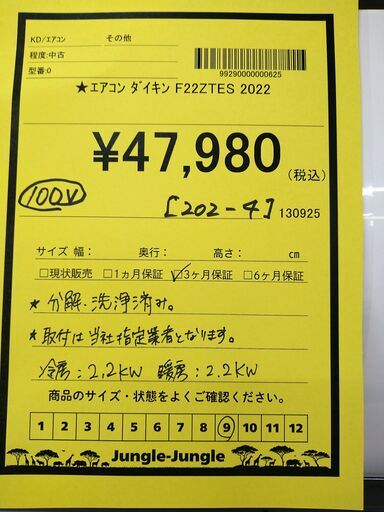 KD/エアコン その他
程度:中古
型番:0
99290000000625
★エアコン ダイキン F22ZTES 2022
¥47,980
(税込)
100V
[202-4] 130925
サイズ 幅: 奥行: 高さ: cm
□現状販売 □1ヵ月保証 ☑3ヶ月保証 □6ヶ月保証
★分解、洗浄済み。
★取付は当社指定業者となります。
冷房:2.2KW 暖房:2.2KW
商品のサイズ・状態をよくご確認ください。
1 2 3 4 5 6 7 8 9 10 11 12
Jungle-Jungle